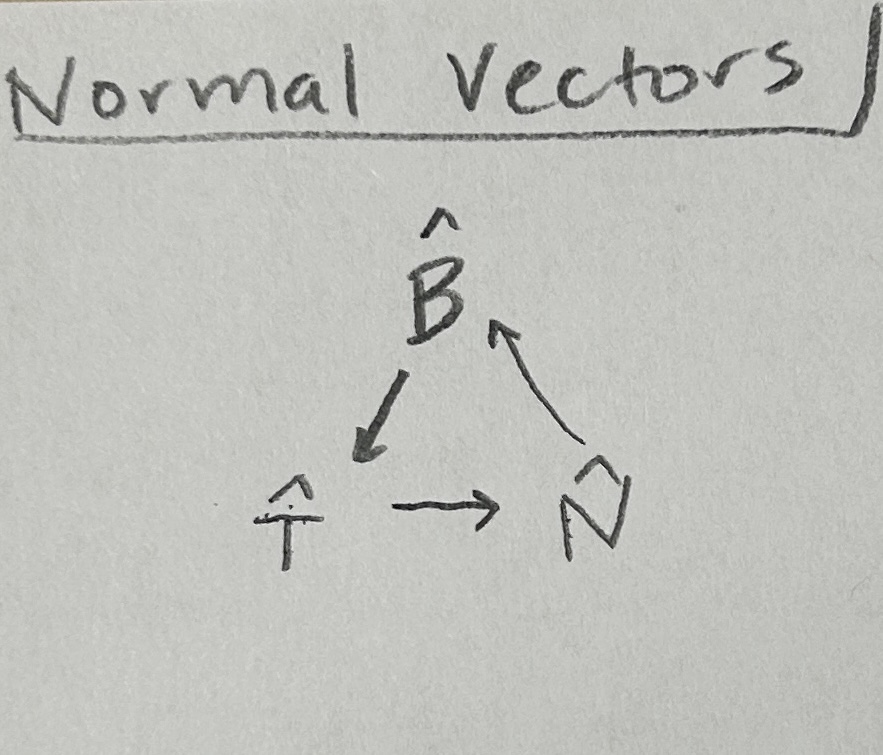 Normal Vectors
B̂
T̂ → N̂